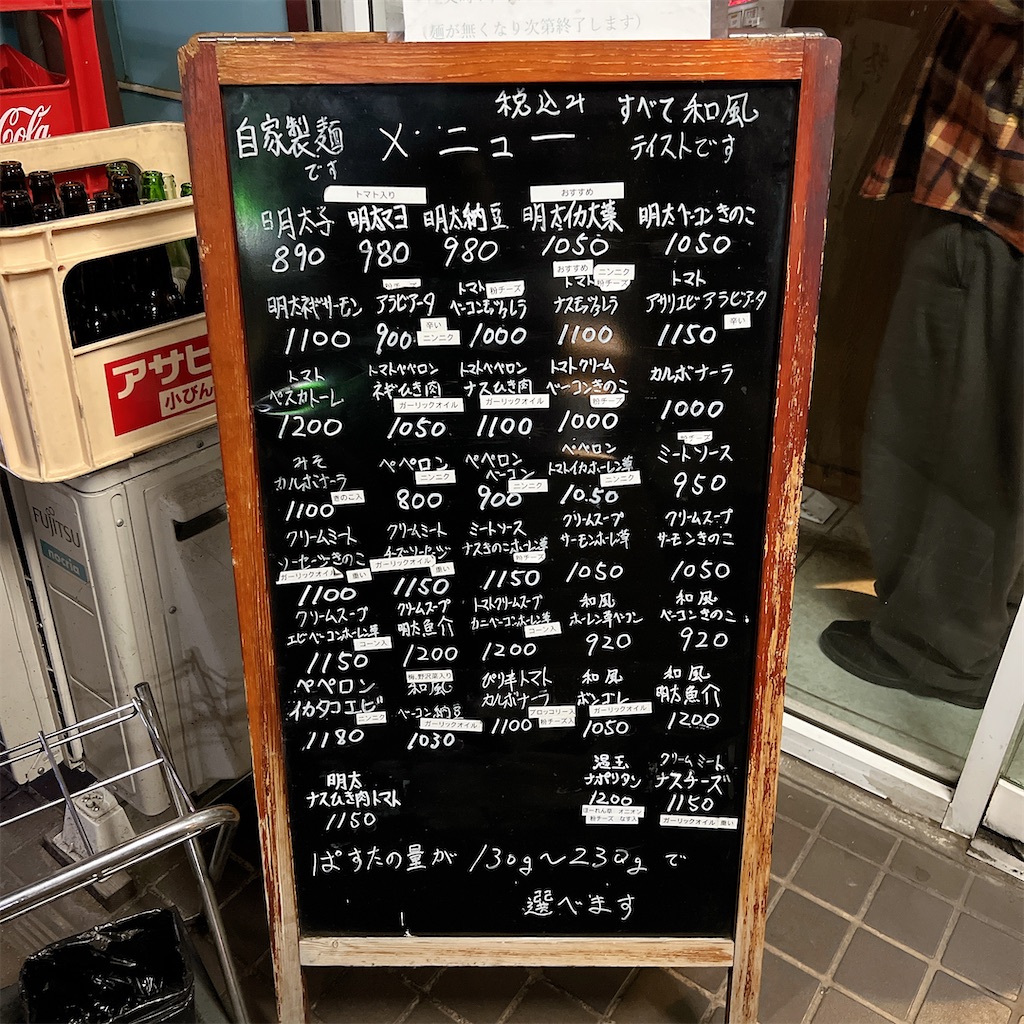 (麺が無くなり次第終了します)
税込み すべて和風
自家製麺 メニュー テイストです
です
トマト入り おすすめ
明太子 明太マヨ 明太納豆 明太イカ大葉 明太ベーコンきのこ
890 980 980 1050 1050
粉チーズ トマト 粉チーズ おすすめ ニンニク トマト トマト
明太ネギサーモン アラビアータ ベーコンモッツァレラ ナスモッツァレラ アサリエビアラビアータ
1100 900 辛い ニンニク 1000 1100 1150 辛い
トマト トマトペペロン トマトペペロン トマトクリーム カルボナーラ
ペスカトーレ ネギひき肉 ナスひき肉 ベーコンきのこ
ガーリックオイル ガーリックオイル 粉チーズ
1200 1050 1100 1000 1000
みそ ペペロン ペペロン ペペロン 粉チーズ
カルボナーラ ニンニク ベーコン トマトイカホーレン草 ミートソース
1100 きのこ入 800 900 ニンニク 1050 ニンニク 950
クリームミート クリームミート ミートソース クリームスープ クリームスープ
ソーセージきのこ チーズソーセージ ナスきのこホーレン草 サーモンホーレン草 サーモンきのこ
ガーリックオイル 重い ガーリックオイル 重い 粉チーズ
1100 1150 1150 1050 1050
クリームスープ クリームスープ トマトクリームスープ 和風 和風
エビベーコンホーレン草 明太魚介 カニベーコンホーレン草 ホーレン草ベーコン ベーコンきのこ
コーン入 コーン入
1150 1200 1200 920 920
ペペロン 梅、野沢菜入り 和風 ぴり辛トマト 和風 和風
イカタコエビ ベーコン納豆 カルボナーラ ボンゴレ 明太魚介
ニンニク ガーリックオイル ブロッコリー入 粉チーズ入 ガーリックオイル
1180 1030 1100 1050 1200
明太 温玉 クリームミート
ナスひき肉トマト ナポリタン ナスチーズ
1150 1200 1150
ほーれん草 オニオン ガーリックオイル 重い
粉チーズ なす入
ぱすたの量が 130g〜230g で
選べます
Cola
アサヒ
小びん
FUJITSU
nocria